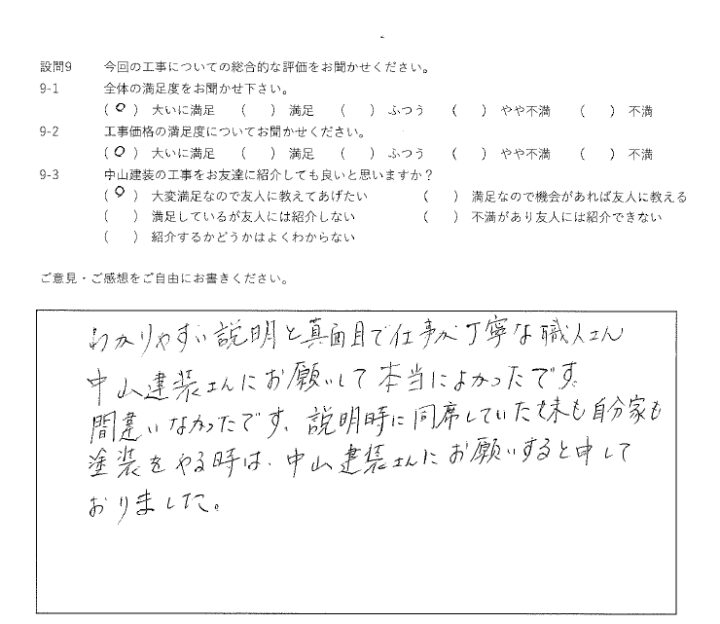 設問9 今回の工事についての総合的な評価をお聞かせください。
9-1 全体の満足度をお聞かせ下さい。
(○) 大いに満足 ( ) 満足 ( ) ふつう ( ) やや不満 ( ) 不満
9-2 工事価格の満足度についてお聞かせください。
(○) 大いに満足 ( ) 満足 ( ) ふつう ( ) やや不満 ( ) 不満
9-3 中山建装の工事をお友達に紹介しても良いと思いますか？
(○) 大変満足なので友人に教えてあげたい ( ) 満足なので機会があれば友人に教える
( ) 満足しているが友人には紹介しない ( ) 不満があり友人には紹介できない
( ) 紹介するかどうかはよくわからない
ご意見・ご感想をご自由にお書きください。
わかりやすい説明と真面目で仕事が丁寧な職人さん
中山建装さんにお願いして本当によかったです。
間違いなかったです。説明時に同席していた妹も自分家も
塗装をやる時は、中山建装さんにお願いすると申して
おりました。